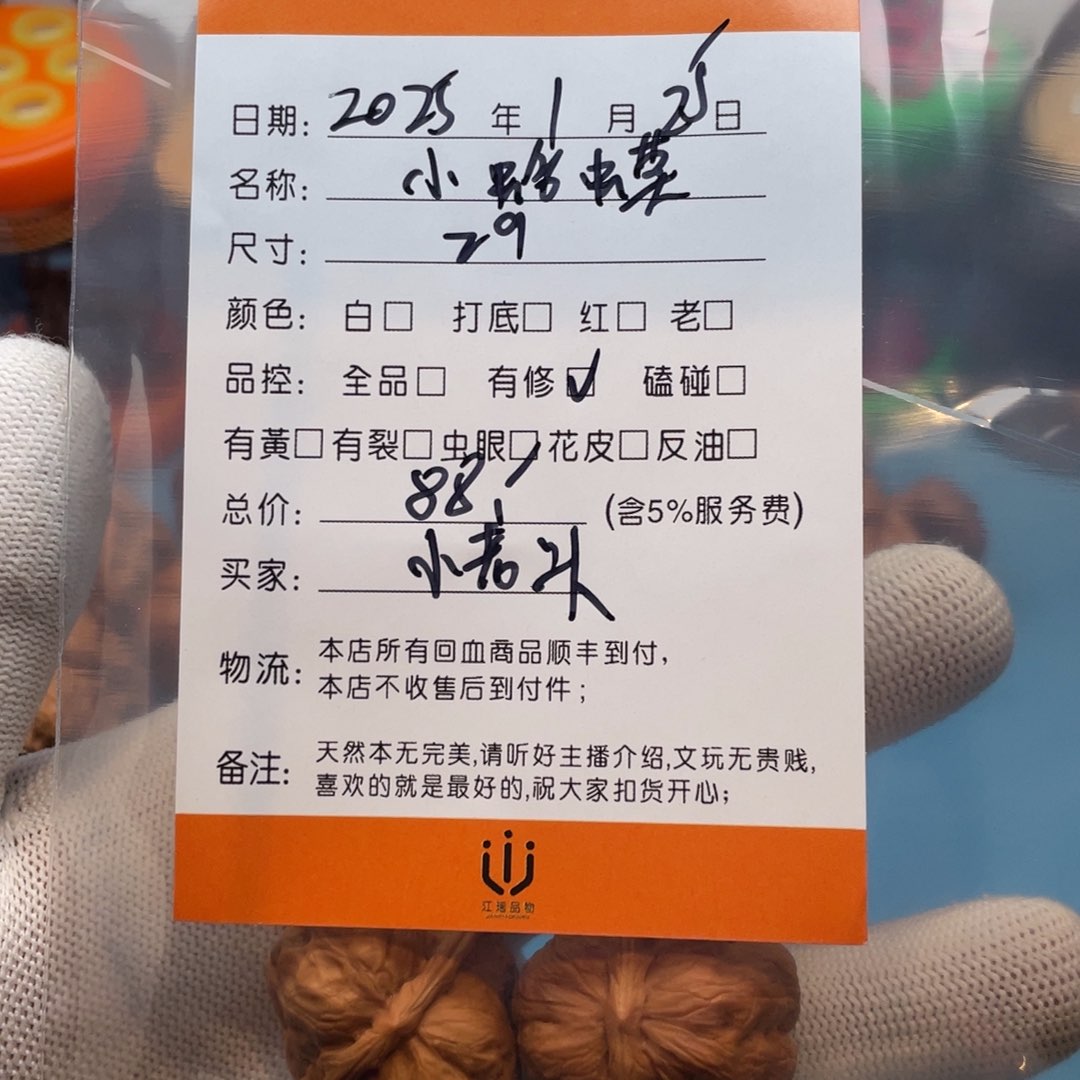 日期: 2025 年 1 月 25 日
名称: 小
尺寸: 29
颜色: 白□ 打底□ 红□ 老□
品控: 全品□ 有修☑ 磕碰□
有黃□有裂□虫眼□花皮□反油□
总价: 88 (含5%服务费)
买家: 小
物流: 本店所有回血商品顺丰到付,
本店不收售后到付件;
备注: 天然本无完美,请听好主播介绍,文玩无贵贱,
喜欢的就是最好的,祝大家扣货开心;
江瑶品物